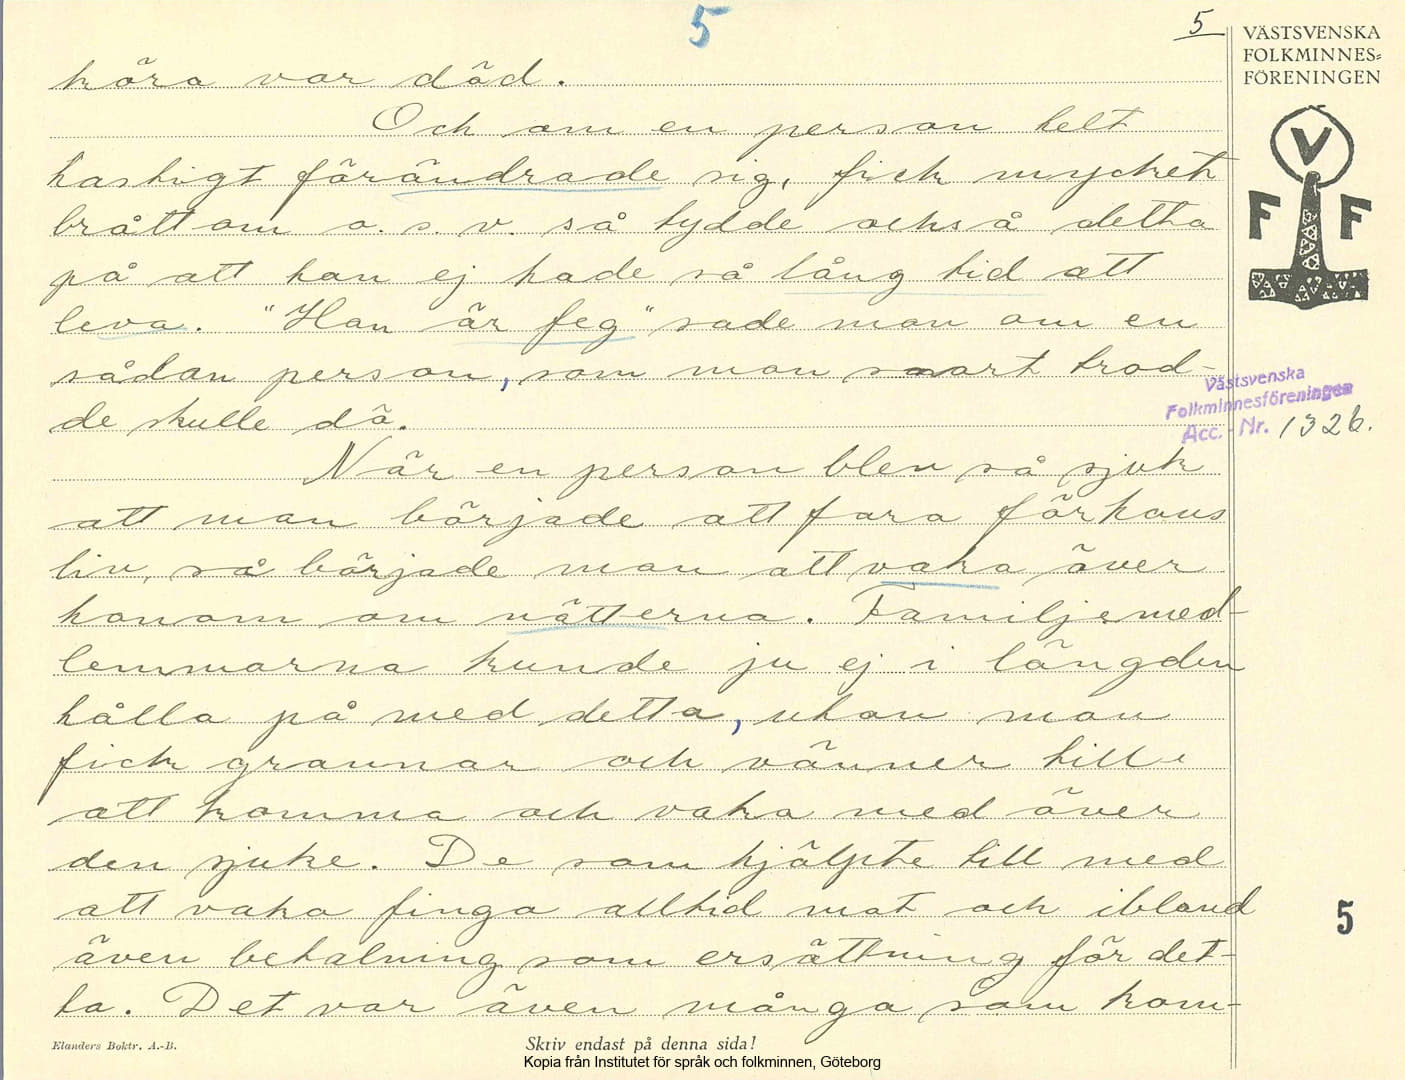 5
5
VÄSTSVENSKA
FOLKMINNES=
FÖRENINGEN
V
F F
köra var död.
Och om en person helt
hastigt förändrade sig, fick mycket
bråttom o. s. v. så tydde också detta
på att han ej hade så lång tid att
leva. "Han är feg" sade man om en
sådan person, som man snart trod-
de skulle dö.
Västsvenska
Folkminnesföreningen
Acc. - Nr. 1326.
När en person blev så sjuk
att man började att fara för hans
liv, så började man att vaka över
honom om nätterna. Familjemed-
lemmarna kunde ju ej i längden
hålla på med detta, utan man
fick grannar och vänner till
att komma och vaka med över
den sjuke. De som hjälpte till med
att vaka finga alltid mat och ibland
även betalning som ersättning för det-
ta. Det var även många som kom-
5
Elanders Boktr. A.-B.
Skriv endast på denna sida!
Kopia från Institutet för språk och folkminnen, Göteborg